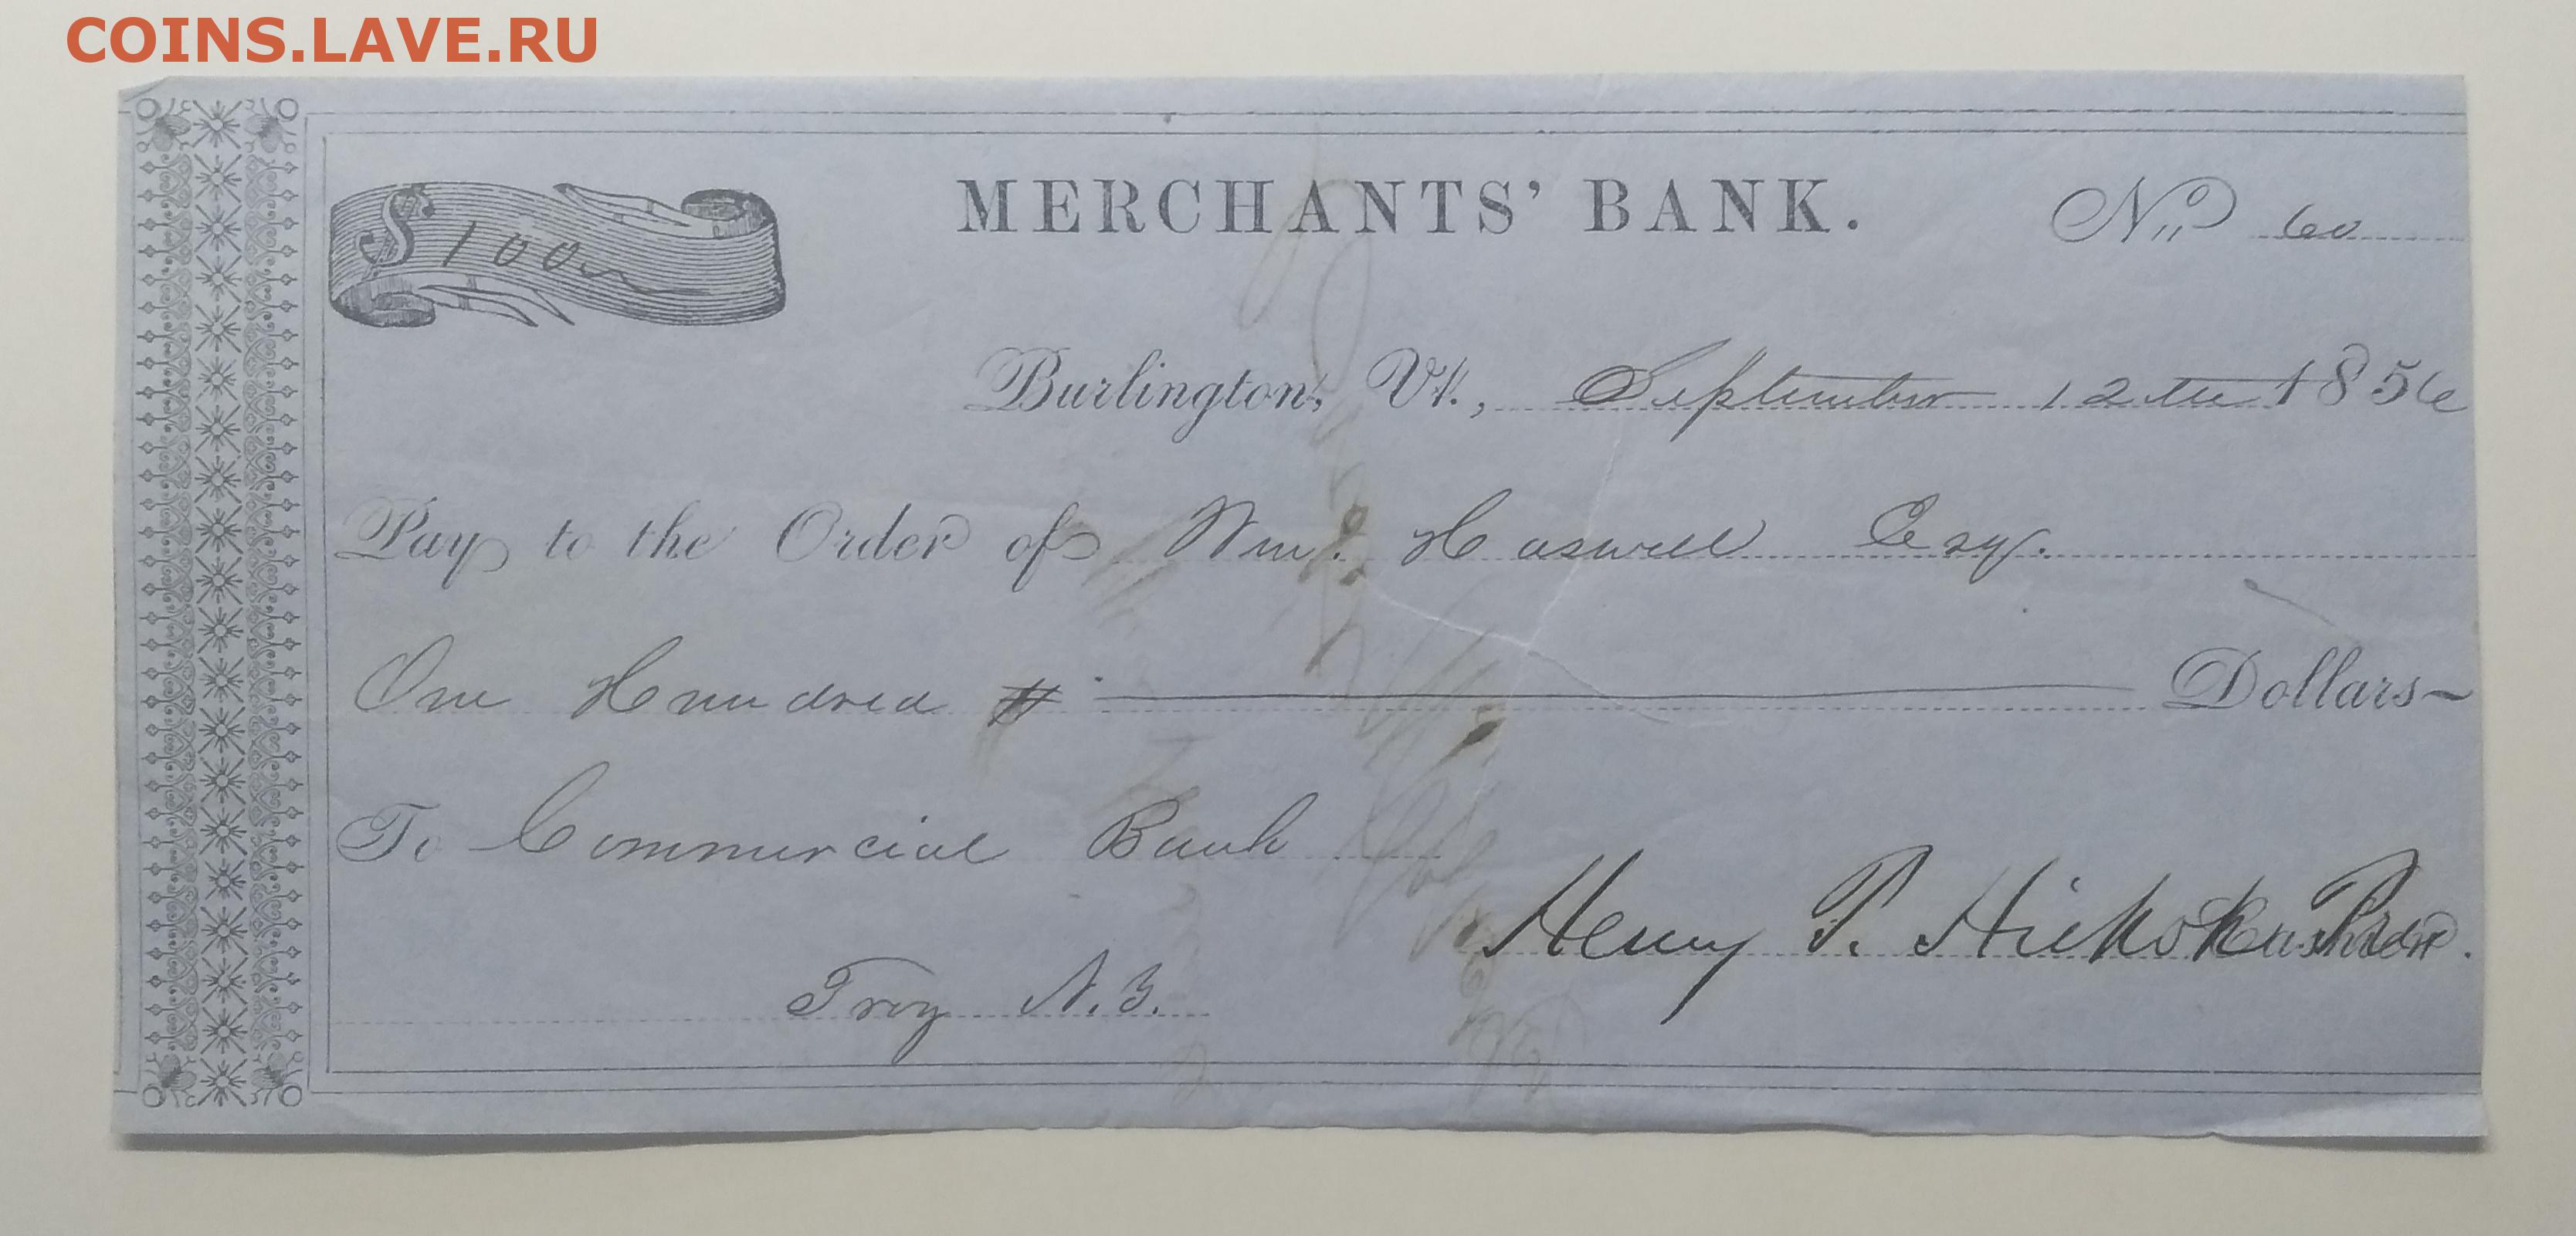 COINS.LAVE.RU
MERCHANTS' BANK. No 60
$100
Burlington, Vt., September 12th 1856
Pay to the Order of Wm. Haswell Esq.
One Hundred Dollars
To Commercial Bank
Henry P. Hickok Presdt. Cashier.
Troy N.Y.